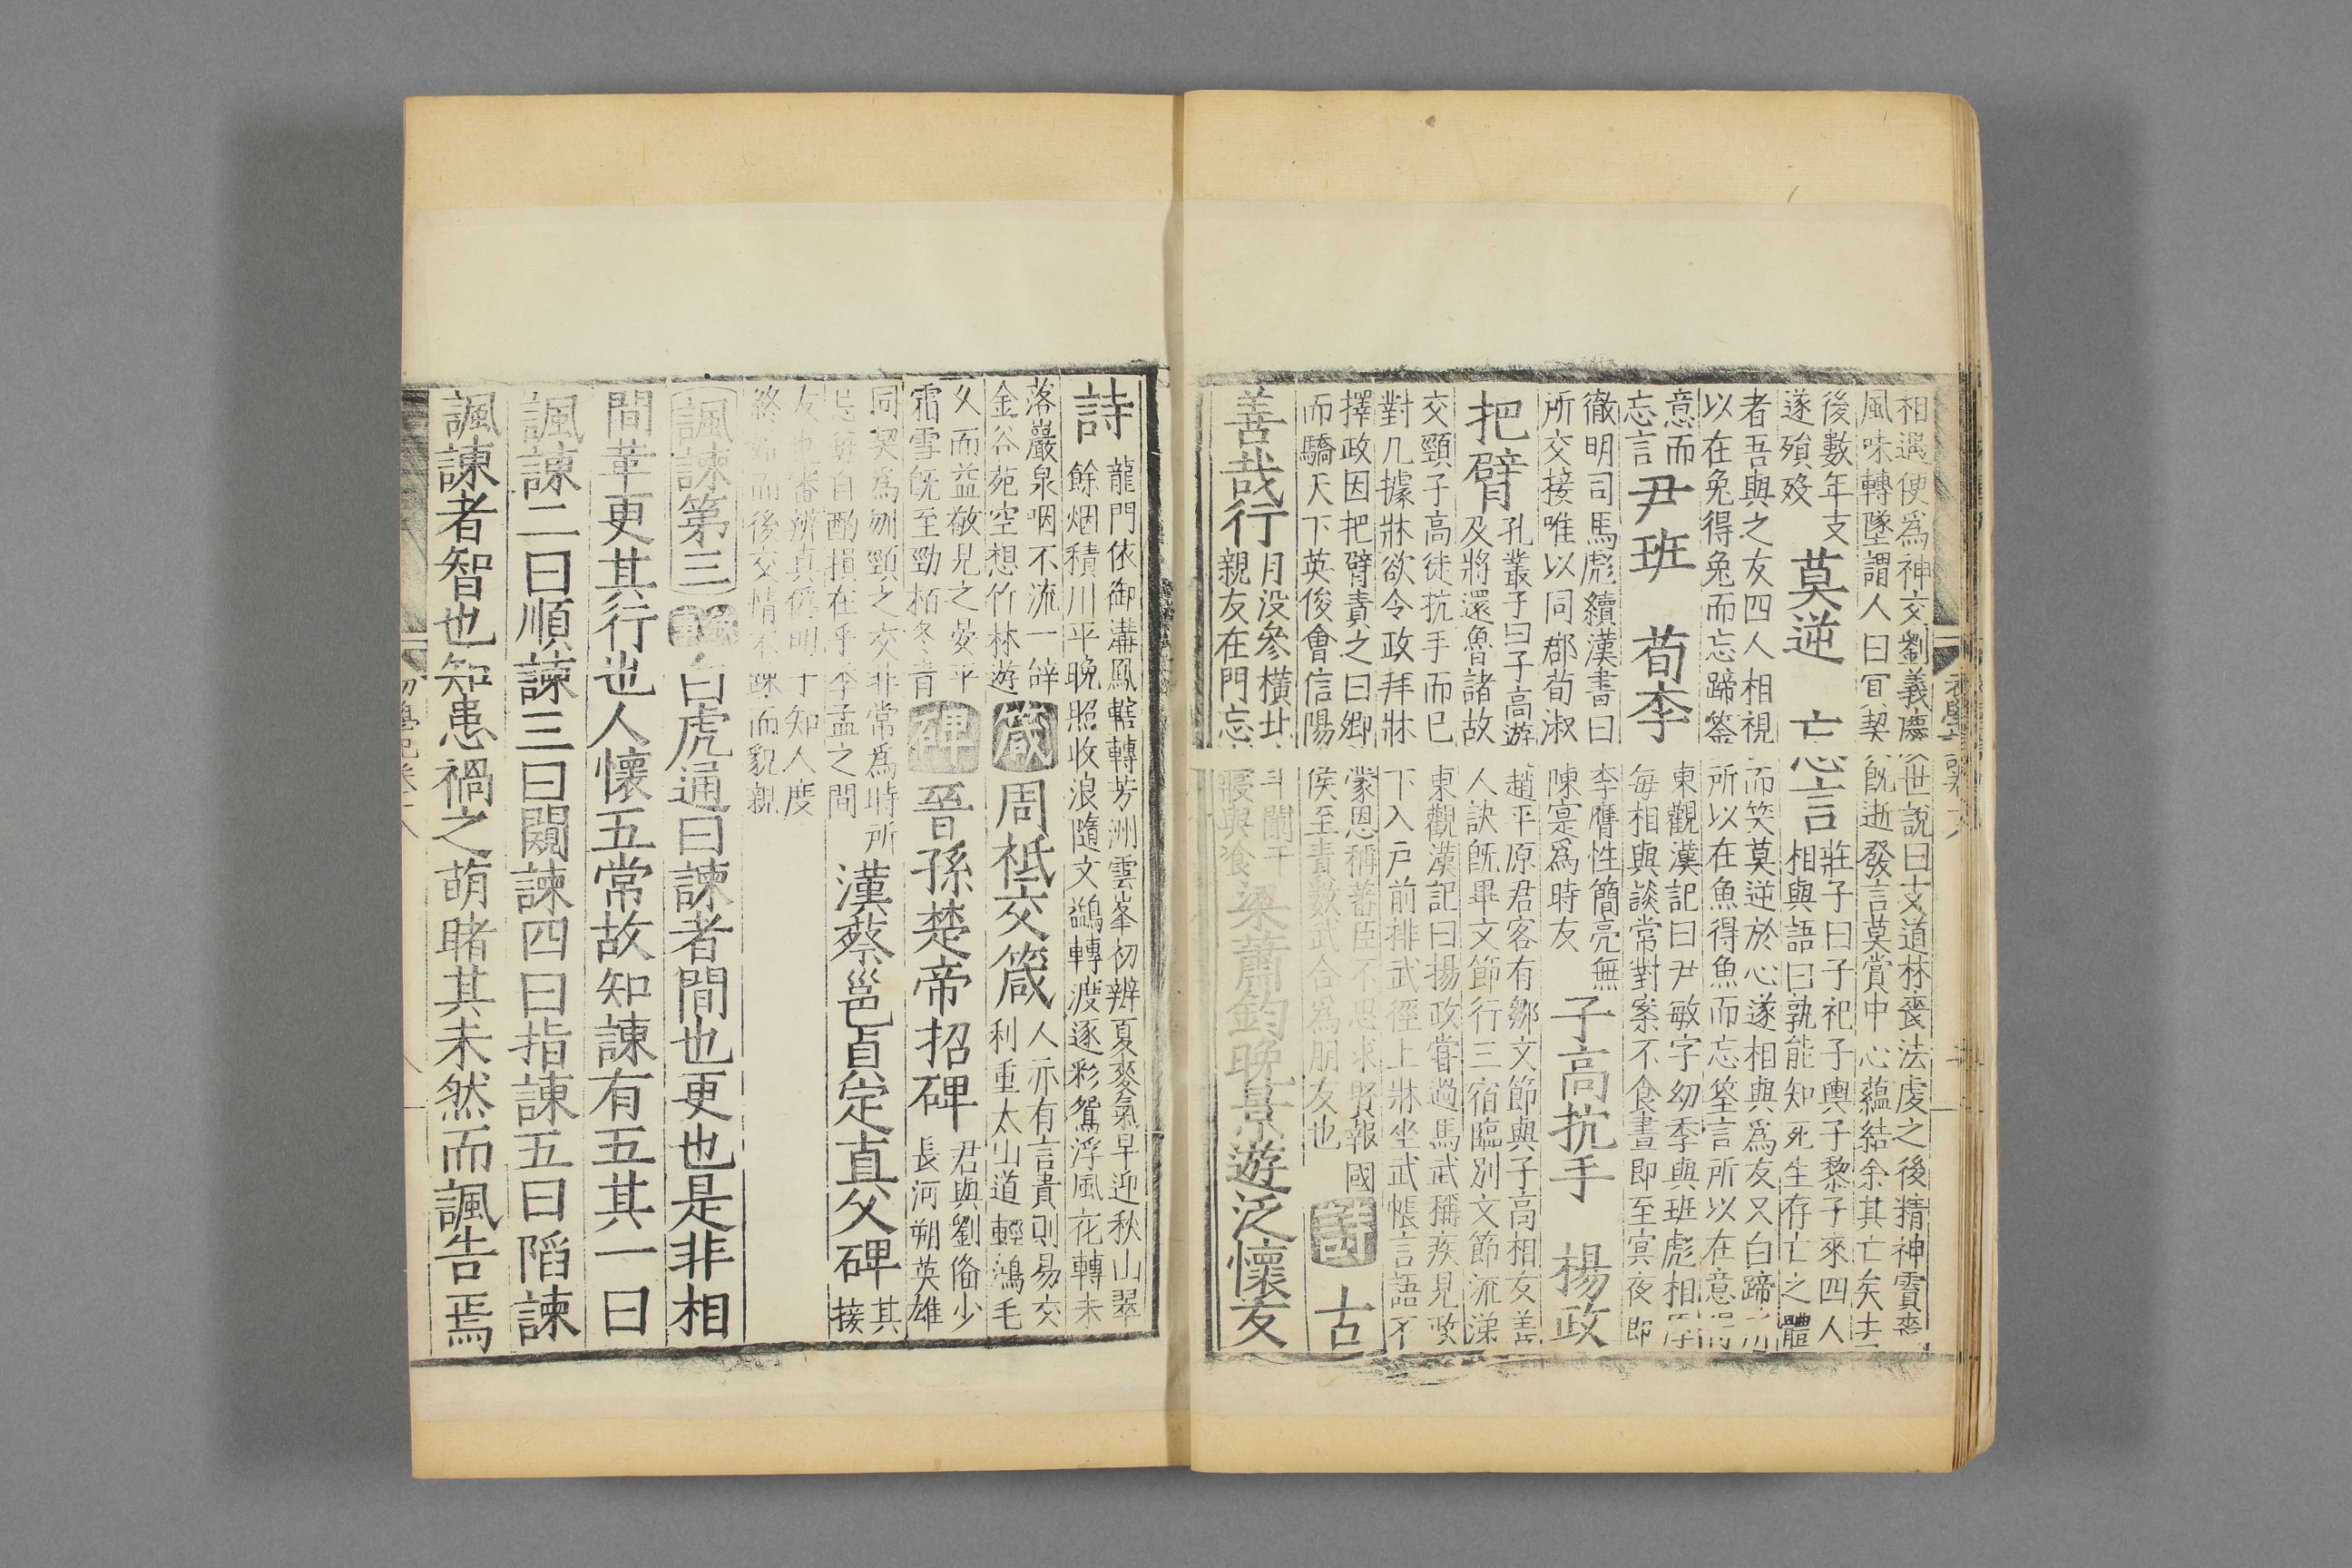 相遇便爲神交劉義慶世說曰支道林喪法虔之後精神霣喪
風味轉墜謂人曰冥契既逝發言莫賞中心蘊結余其亡矣
後數年支
遂殞歿
莫逆
忘言
莊子曰子祀子輿子黎子來四人
相與語曰孰能知死生存亡之體
者吾與之友四人相視而笑莫逆於心遂相與爲友又曰蹄
以在兔得兔而忘蹄筌所以在魚得魚而忘筌言所以在意得
意而
忘言
尹班
荀李
東觀漢記曰尹敏字幼季與班彪相厚
每相與談常對案不食晝即至冥夜即
徹明司馬彪續漢書曰李膺性簡亮無
所交接唯以同郡荀淑陳寔爲時友
子高抗手
楊政
把臂
孔叢子曰子高遊趙平原君客有鄒文節與子高相友善
及將還魯諸故人訣既畢文節行三宿臨別文節流涕
交頸子高徒抗手而已東觀漢記曰揚政嘗過馬武稱疾見政
對几據牀欲令政拜牀下入戶前排武徑上牀坐武帳言語不
擇政因把臂責之曰卿蒙恩稱蕃臣不思求賢報國
而驕天下英俊會信陽侯至責數武令爲朋友也
詩
古
善哉行
月没參橫北斗闌干
親友在門忘寢與飡
梁蕭鈞晚景遊泛懷友
詩
龍門依御溝鳳轄轉芳洲雲峯初辨夏麥氣早迎秋山翠
餘烟積川平晚照收浪隨文鷁轉渡逐彩鴛浮風花轉未
落巖泉咽不流一辭
金谷苑空想竹林遊
箴
周祗交箴
人亦有言貴則易交
利重太山道輕鴻毛
久而益敬見之晏平
霜雪既至勁柏冬青
碑
晉孫楚帝招碑
君與劉俻少
長河朔英雄
同契爲刎頸之交非常爲時所
忌每自酌損在乎季孟之間
漢蔡邕貞定直父碑
其
接
友也審辨真僞明于知人度
終始而後交情不踈而貌親
諷諫第三
敘事
白虎通曰諫者間也更也是非相
間革更其行也人懷五常故知諫有五其一曰
諷諫二曰順諫三曰闚諫四曰指諫五曰䧟諫
諷諫者智也知患禍之萌睹其未然而諷告焉
初學記卷十八